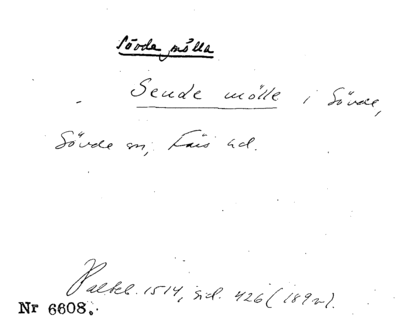 Sövde mölla
Sende mölle i Sövde,
Sövde sn, Färs hd.
Palteb. 1514, sid. 426 (189v).
Nr 6608.